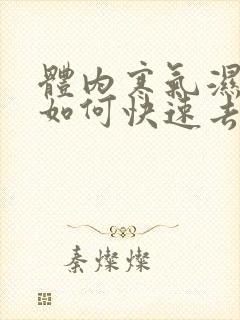 體內寒氣濕
如何快速去
秦燦燦